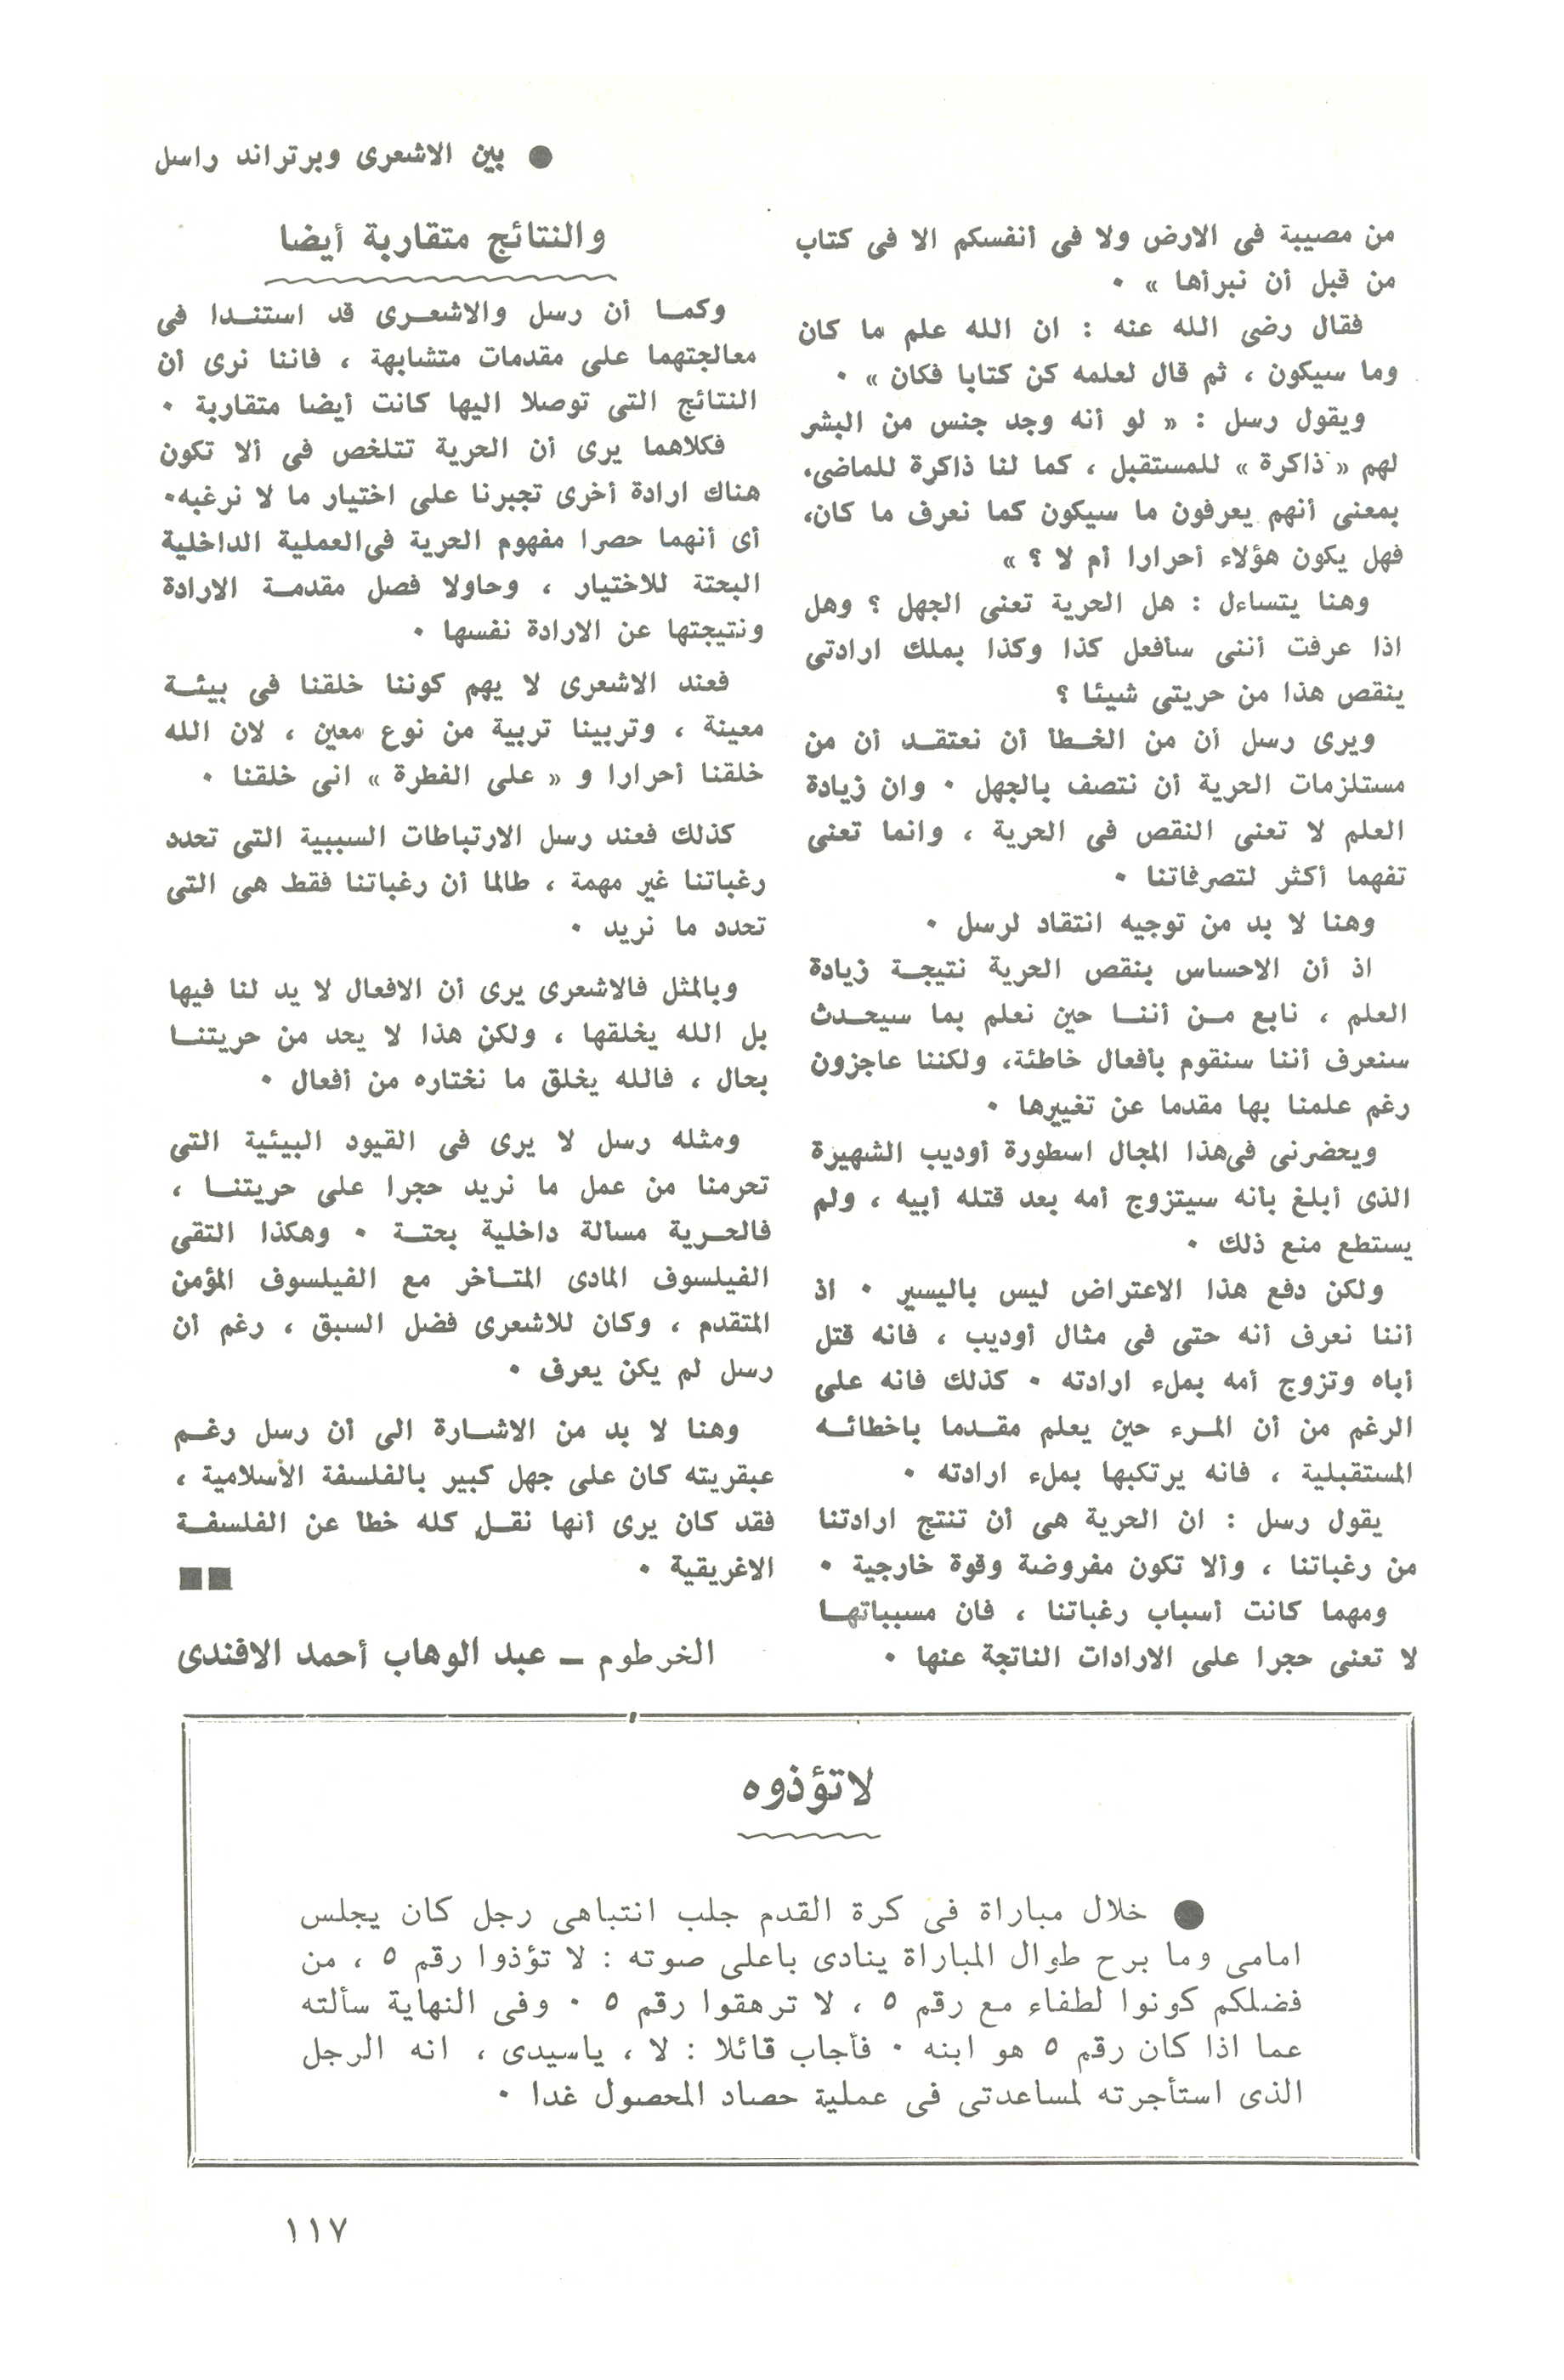 ● بين الاشعرى وبرتراند راسل
من مصيبة فى الارض ولا فى أنفسكم الا فى كتاب
من قبل أن نبرأها » ٠
فقال رضى الله عنه : ان الله علم ما كان
وما سيكون ، ثم قال لعلمه كن كتابا فكان » ٠
ويقول رسل : « لو أنه وجد جنس من البشر
لهم « ذاكرة » للمستقبل ، كما لنا ذاكرة للماضى،
بمعنى أنهم يعرفون ما سيكون كما نعرف ما كان،
فهل يكون هؤلاء أحرارا أم لا ؟ »
وهنا يتساءل : هل الحرية تعنى الجهل ؟ وهل
اذا عرفت أننى سأفعل كذا وكذا بملك ارادتى
ينقص هذا من حريتى شيئا ؟
ويرى رسل أن من الخطأ أن نعتقد أن من
مستلزمات الحرية أن نتصف بالجهل ٠ وان زيادة
العلم لا تعنى النقص فى الحرية ، وانما تعنى
تفهما أكثر لتصرفاتنا ٠
وهنا لا بد من توجيه انتقاد لرسل ٠
اذ أن الاحساس بنقص الحرية نتيجة زيادة
العلم ، نابع من أننا حين نعلم بما سيحدث
سنعرف أننا سنقوم بأفعال خاطئة، ولكننا عاجزون
رغم علمنا بها مقدما عن تغييرها ٠
ويحضرنى فى هذا المجال اسطورة أوديب الشهيرة
الذى أبلغ بأنه سيتزوج أمه بعد قتله أبيه ، ولم
يستطع منع ذلك ٠
ولكن دفع هذا الاعتراض ليس باليسير ٠ اذ
أننا نعرف أنه حتى فى مثال أوديب ، فانه قتل
أباه وتزوج أمه بملء ارادته ٠ كذلك فانه على
الرغم من أن المرء حين يعلم مقدما باخطائه
المستقبلية ، فانه يرتكبها بملء ارادته ٠
يقول رسل : ان الحرية هى أن تنتج ارادتنا
من رغباتنا ، وألا تكون مفروضة وقوة خارجية ٠
ومهما كانت أسباب رغباتنا ، فان مسبباتها
لا تعنى حجرا على الارادات الناتجة عنها ٠
والنتائج متقاربة أيضا
وكما أن رسل والاشعرى قد استندا فى
معالجتهما على مقدمات متشابهة ، فاننا نرى أن
النتائج التى توصلا اليها كانت أيضا متقاربة ٠
فكلاهما يرى أن الحرية تتلخص فى ألا تكون
هناك ارادة أخرى تجبرنا على اختيار ما لا نرغبه٠
أى أنهما حصرا مفهوم الحرية فى العملية الداخلية
البحتة للاختيار ، وحاولا فصل مقدمة الارادة
ونتيجتها عن الارادة نفسها ٠
فعند الاشعرى لا يهم كوننا خلقنا فى بيئة
معينة ، وتربينا تربية من نوع معين ، لان الله
خلقنا أحرارا و « على الفطرة » انى خلقنا ٠
كذلك فعند رسل الارتباطات السببية التى تحدد
رغباتنا غير مهمة ، طالما أن رغباتنا فقط هى التى
تحدد ما نريد ٠
وبالمثل فالاشعرى يرى أن الافعال لا يد لنا فيها
بل الله يخلقها ، ولكن هذا لا يحد من حريتنا
بحال ، فالله يخلق ما نختاره من أفعال ٠
ومثله رسل لا يرى فى القيود البيئية التى
تحرمنا من عمل ما نريد حجرا على حريتنا ،
فالحرية مسألة داخلية بحتة ٠ وهكذا التقى
الفيلسوف المادى المتأخر مع الفيلسوف المؤمن
المتقدم ، وكان للاشعرى فضل السبق ، رغم أن
رسل لم يكن يعرف ٠
وهنا لا بد من الاشارة الى أن رسل رغم
عبقريته كان على جهل كبير بالفلسفة الأسلامية ،
فقد كان يرى أنها نقل كله خطأ عن الفلسفة
الاغريقية ٠
الخرطوم ــ عبد الوهاب أحمد الافندى
لاتؤذوه
● خلال مباراة فى كرة القدم جلب انتباهى رجل كان يجلس
امامى وما برح طوال المباراة ينادى باعلى صوته : لا تؤذوا رقم ٥ ، من
فضلكم كونوا لطفاء مع رقم ٥ ، لا ترهقوا رقم ٥ ٠ وفى النهاية سألته
عما اذا كان رقم ٥ هو ابنه ٠ فأجاب قائلا : لا ، ياسيدى ، انه الرجل
الذى استأجرته لمساعدتى فى عملية حصاد المحصول غدا ٠
١١٧